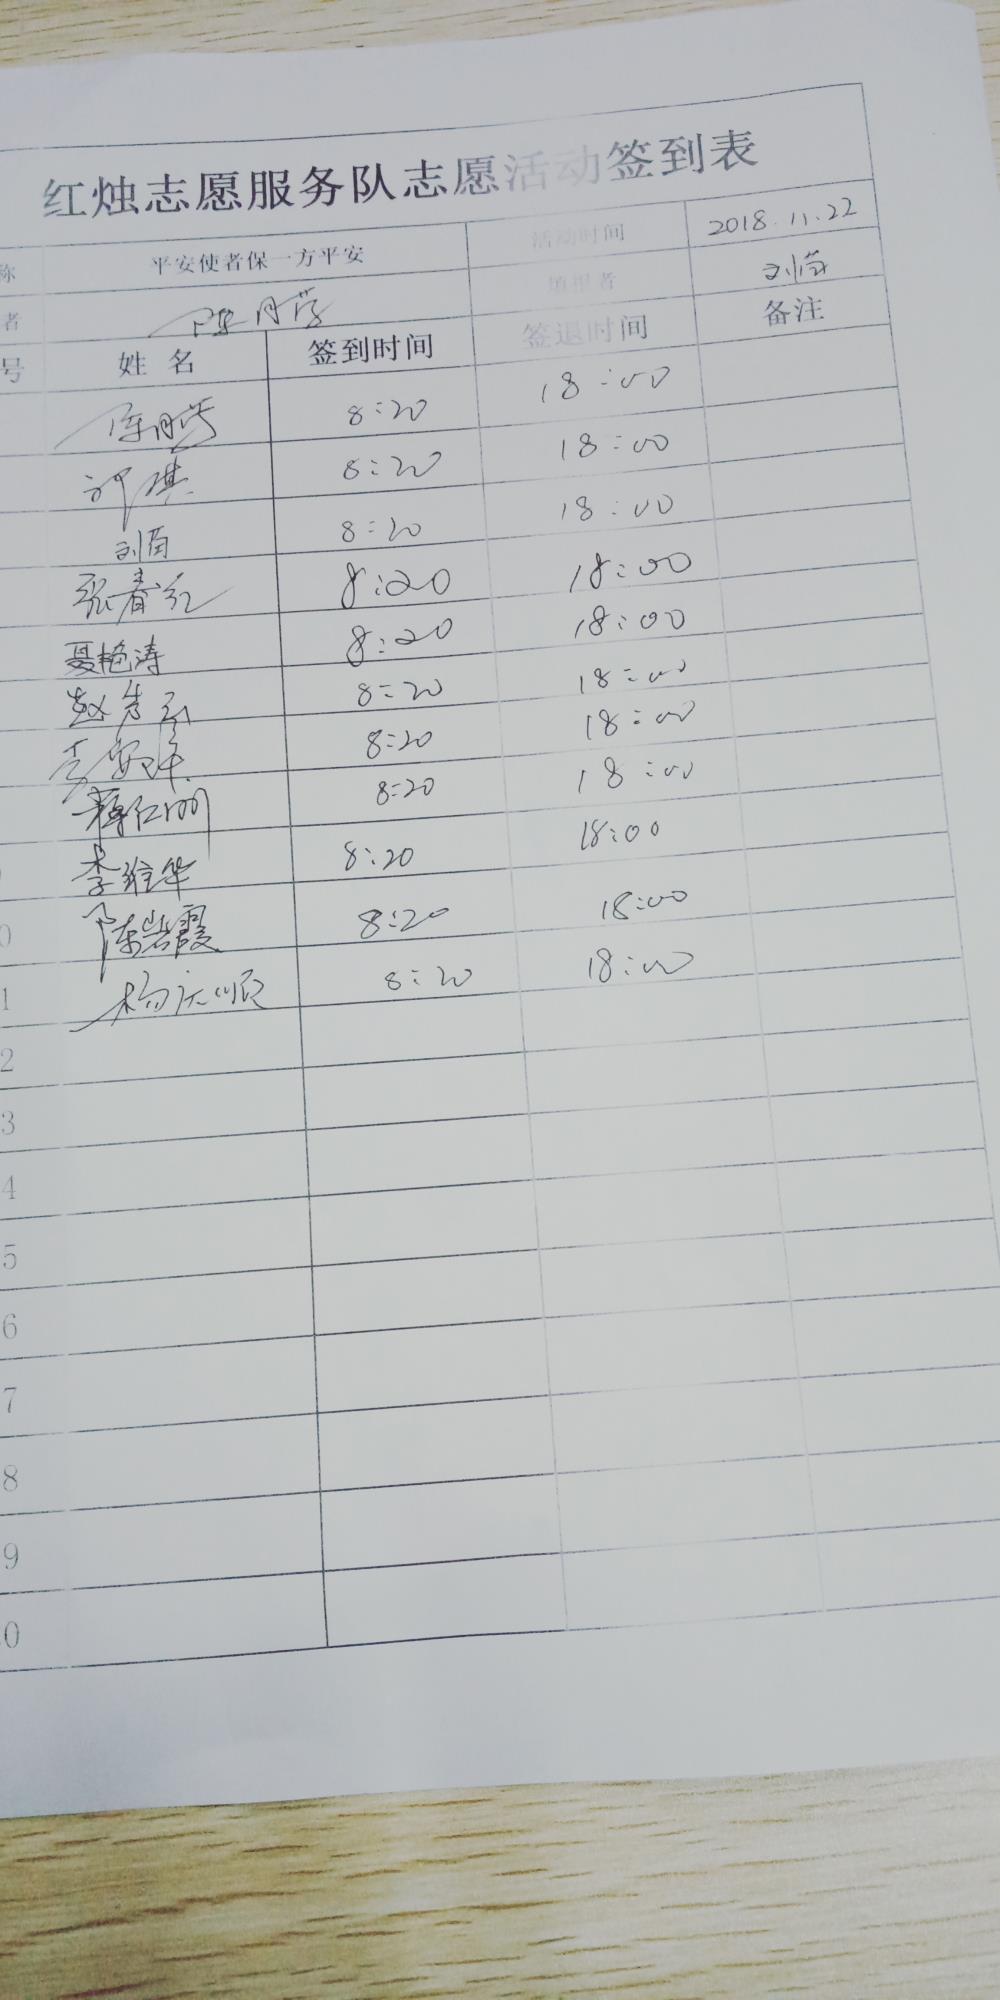 红烛志愿服务队志愿活动签到表
称 平安使者保一方平安 活动时间 2018.11.22
者 填报者
号 姓名 签到时间 签退时间 备注
8:20 18:00
8:20 18:00
8:20 18:00
张春红 8:20 18:00
聂艳涛 8:20 18:00
8:20 18:00
8:20 18:00
8:20 18:00
李维华 8:20 18:00
0 陈岩霞 8:20 18:00
1 杨庆顺 8:20 18:00
2
3
4
5
6
7
8
9
0